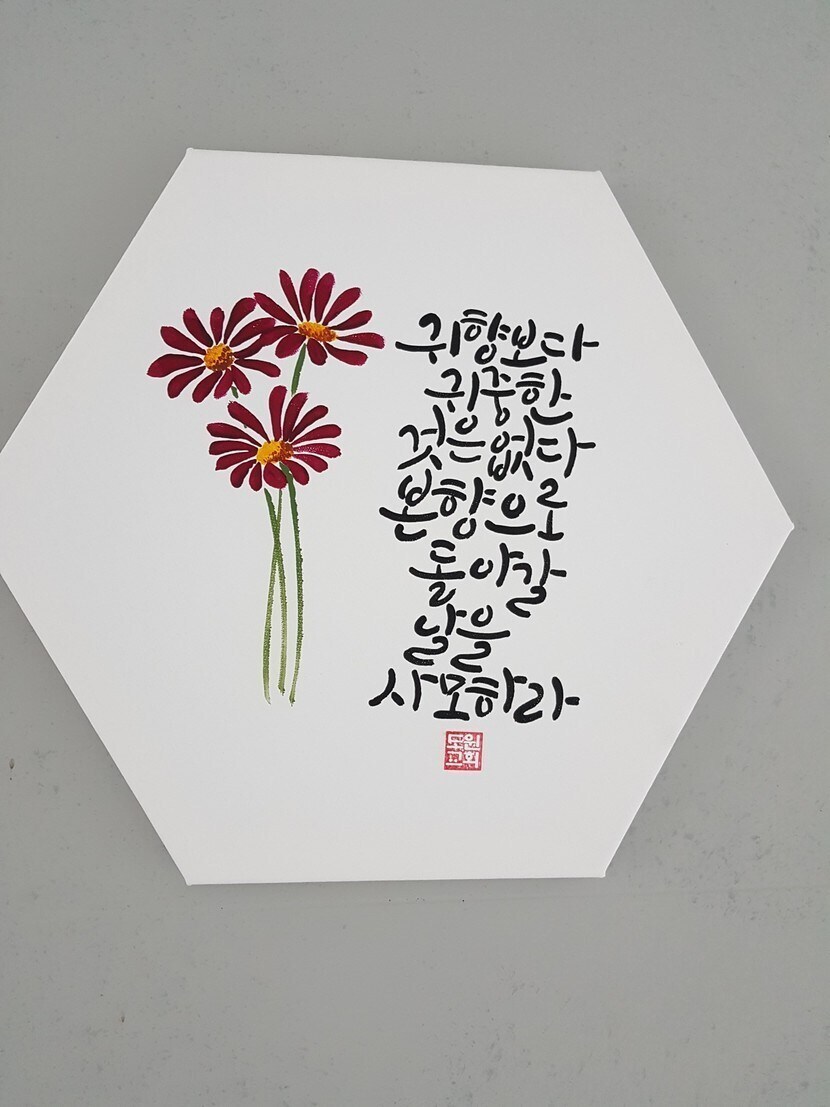 귀향보다
귀중한
것은없다
본향으로
돌아갈
날을
사모하라